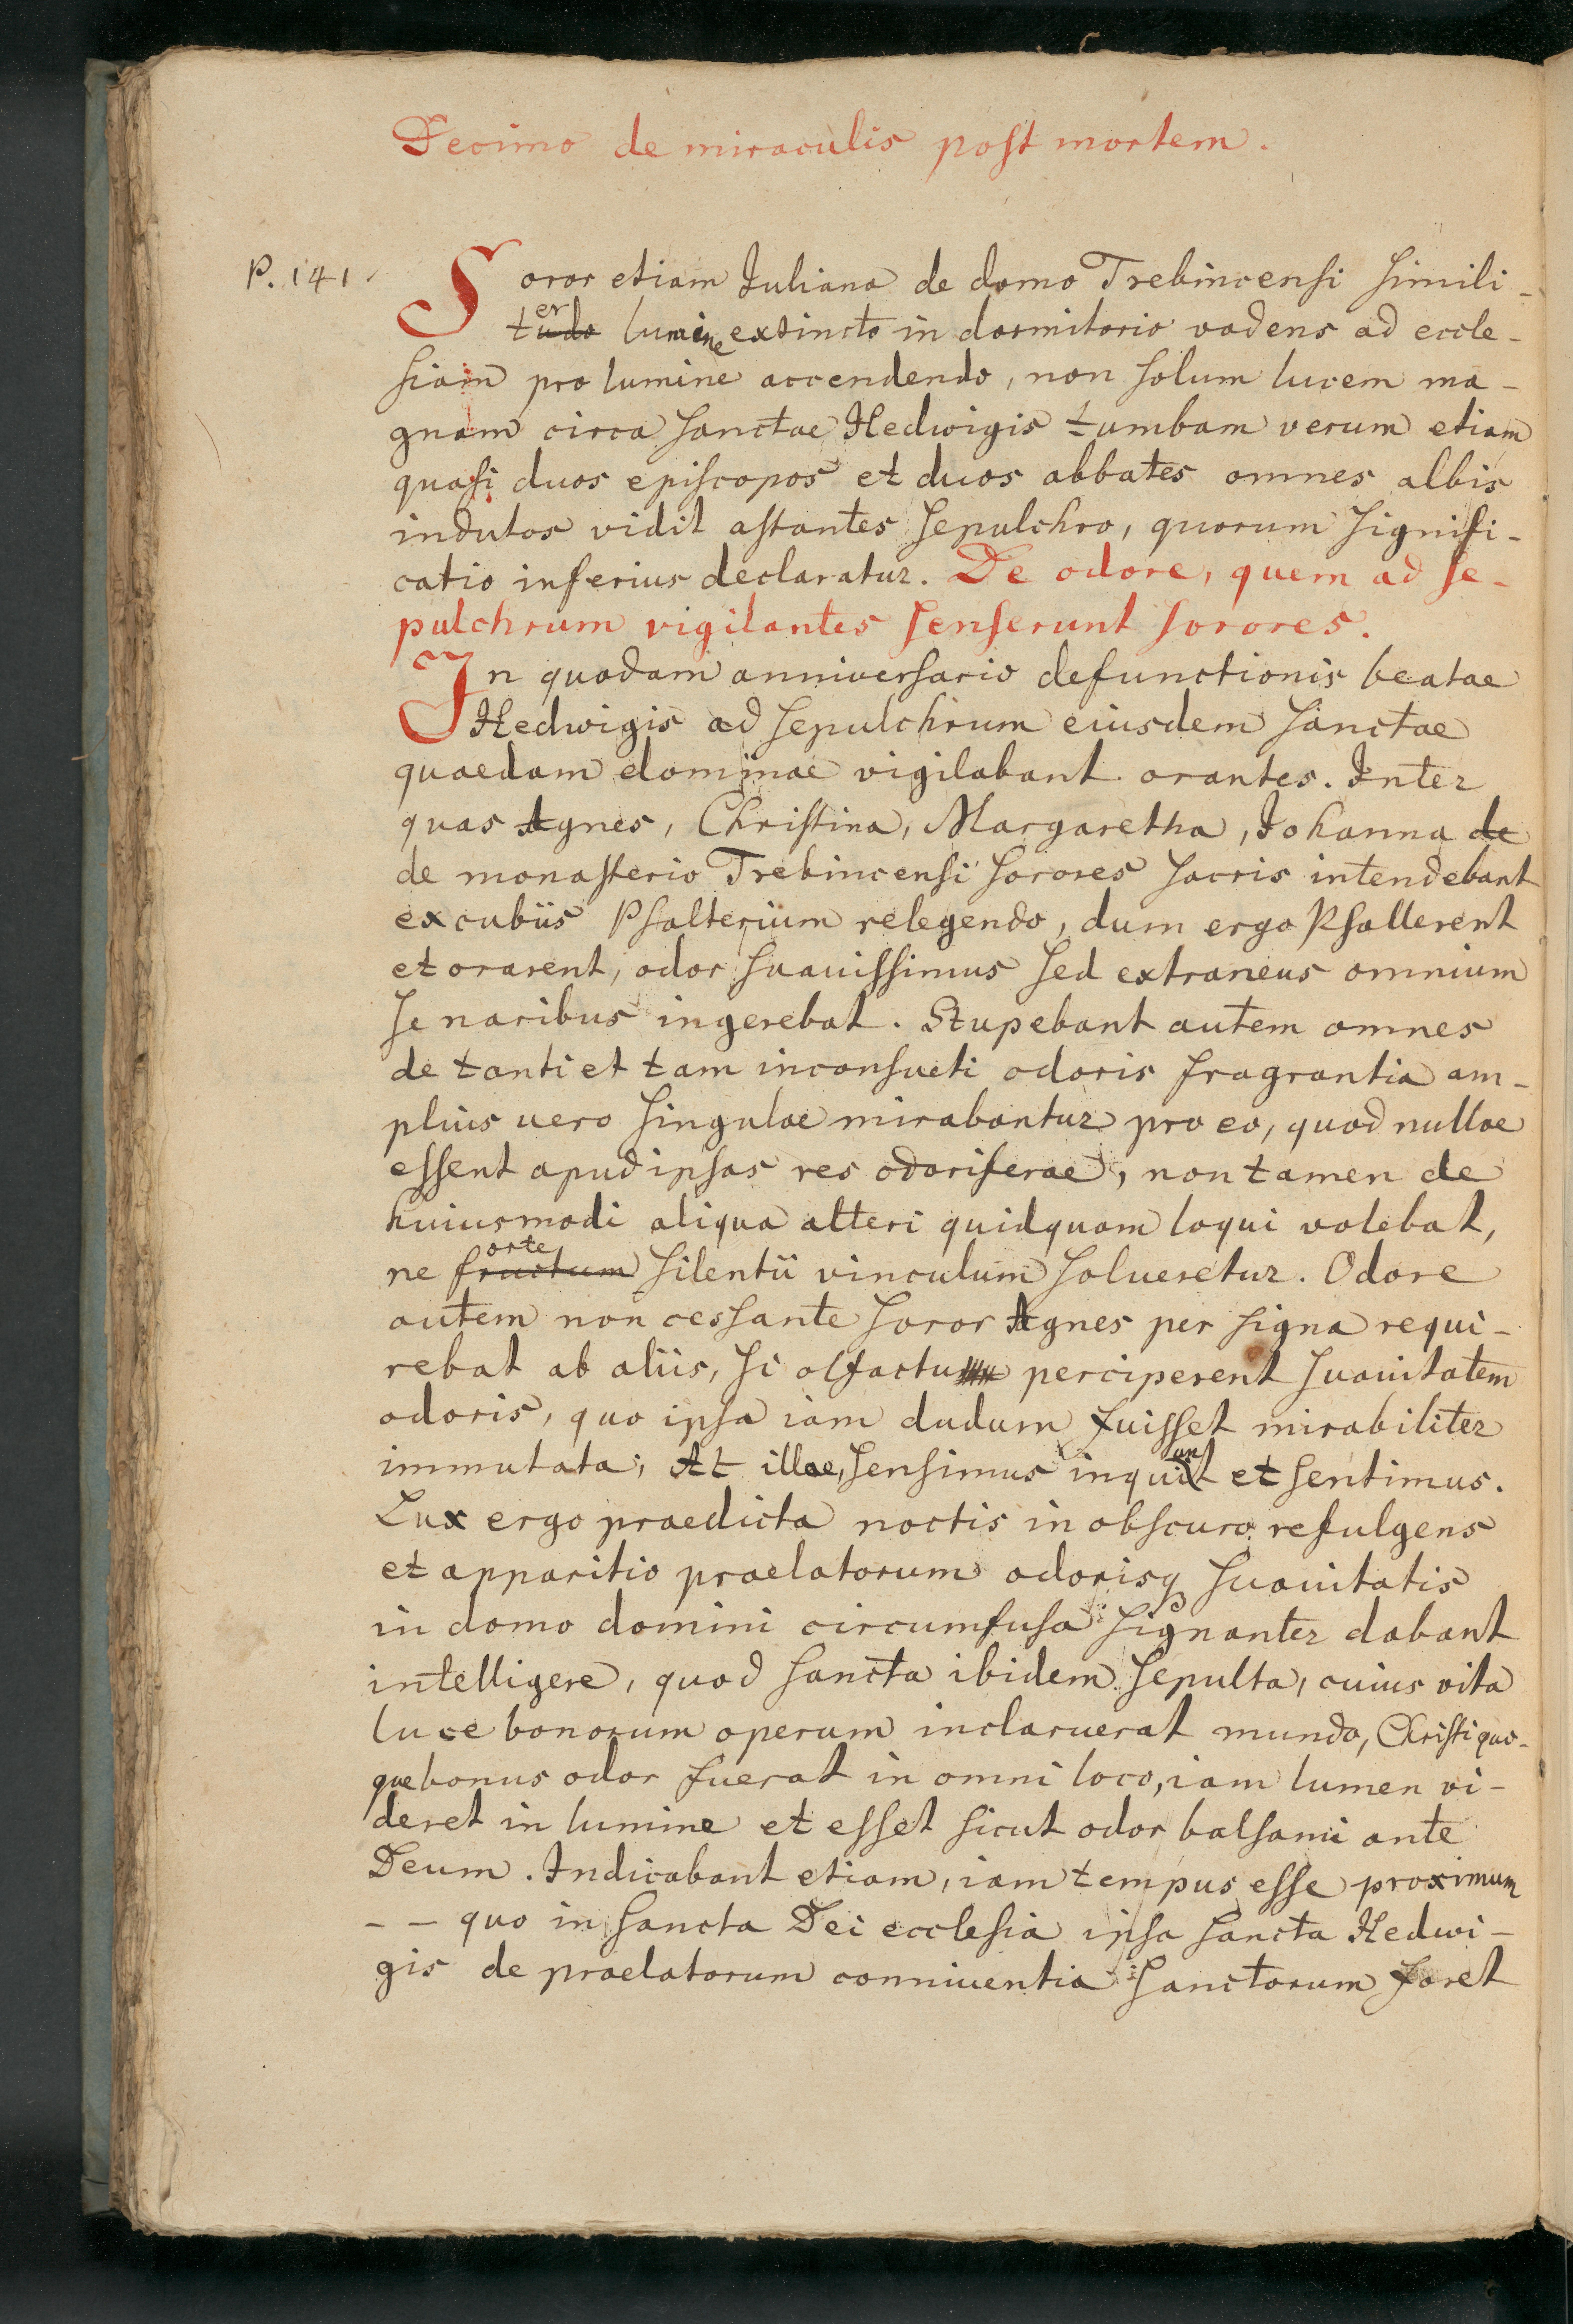 Decimo de miraculis post mortem.
P. 141.
Soror etiam Iuliana de domo Trebincensi simili-
tudo er lumine extincto in dormitorio vadens ad eccle-
siam pro lumine accendendo, non solum lucem ma-
gnam circa sanctae Hedwigis tumbam verum etiam
quasi duos episcopos et duos abbates omnes albis
indutos vidit astantes sepulchro, quorum signifi-
catio inferius declaratur. De odore, quem ad se-
pulchrum vigilantes senserunt sorores.
In quodam anniversario defunctionis beatae
Hedwigis ad sepulchrum eiusdem sanctae
quaedam dominae vigilabant orantes. Inter
quas Agnes, Christina, Margaretha, Iohanna de
de monasterio Trebincensi sorores sacris intendebant
excubiis Psalterium relegendo, dum ergo Psallerent
et orarent, odor suauissimus sed extraneus omnium
se naribus ingerebat. Stupebant autem omnes
de tanti et tam inconsueti odoris fragrantia am-
plius uero singulae mirabantur pro eo, quod nullae
essent apud ipsas res odoriferae, non tamen de
huiusmodi aliqua alteri quidquam loqui volebat,
ne fructum orte silentii vinculum solueretur. Odore
autem non cessante soror Agnes per signa requi-
rebat ab aliis, si olfactu perciperent suauitatem
odoris, quo ipsa iam dudum fuisset mirabiliter
immutata; At illae, sensimus inquiunt et sentimus.
Lux ergo praedicta noctis in obscuro refulgens
et apparitio praelatorum odorisq suauitatis
in domo domini circumfusa signanter dabant
intelligere, quod sancta ibidem sepulta, cuius vita
luce bonorum operum inclaruerat mundo, Christi quo-
que bonus odor fuerat in omni loco, iam lumen vi-
deret in lumine et esset sicut odor balsami ante
Deum. Indicabant etiam, iam tempus esse proximum
- - quo in sancta Dei ecclesia ipsa sancta Hedwi-
gis de praelatorum conniuentia sanctorum foret